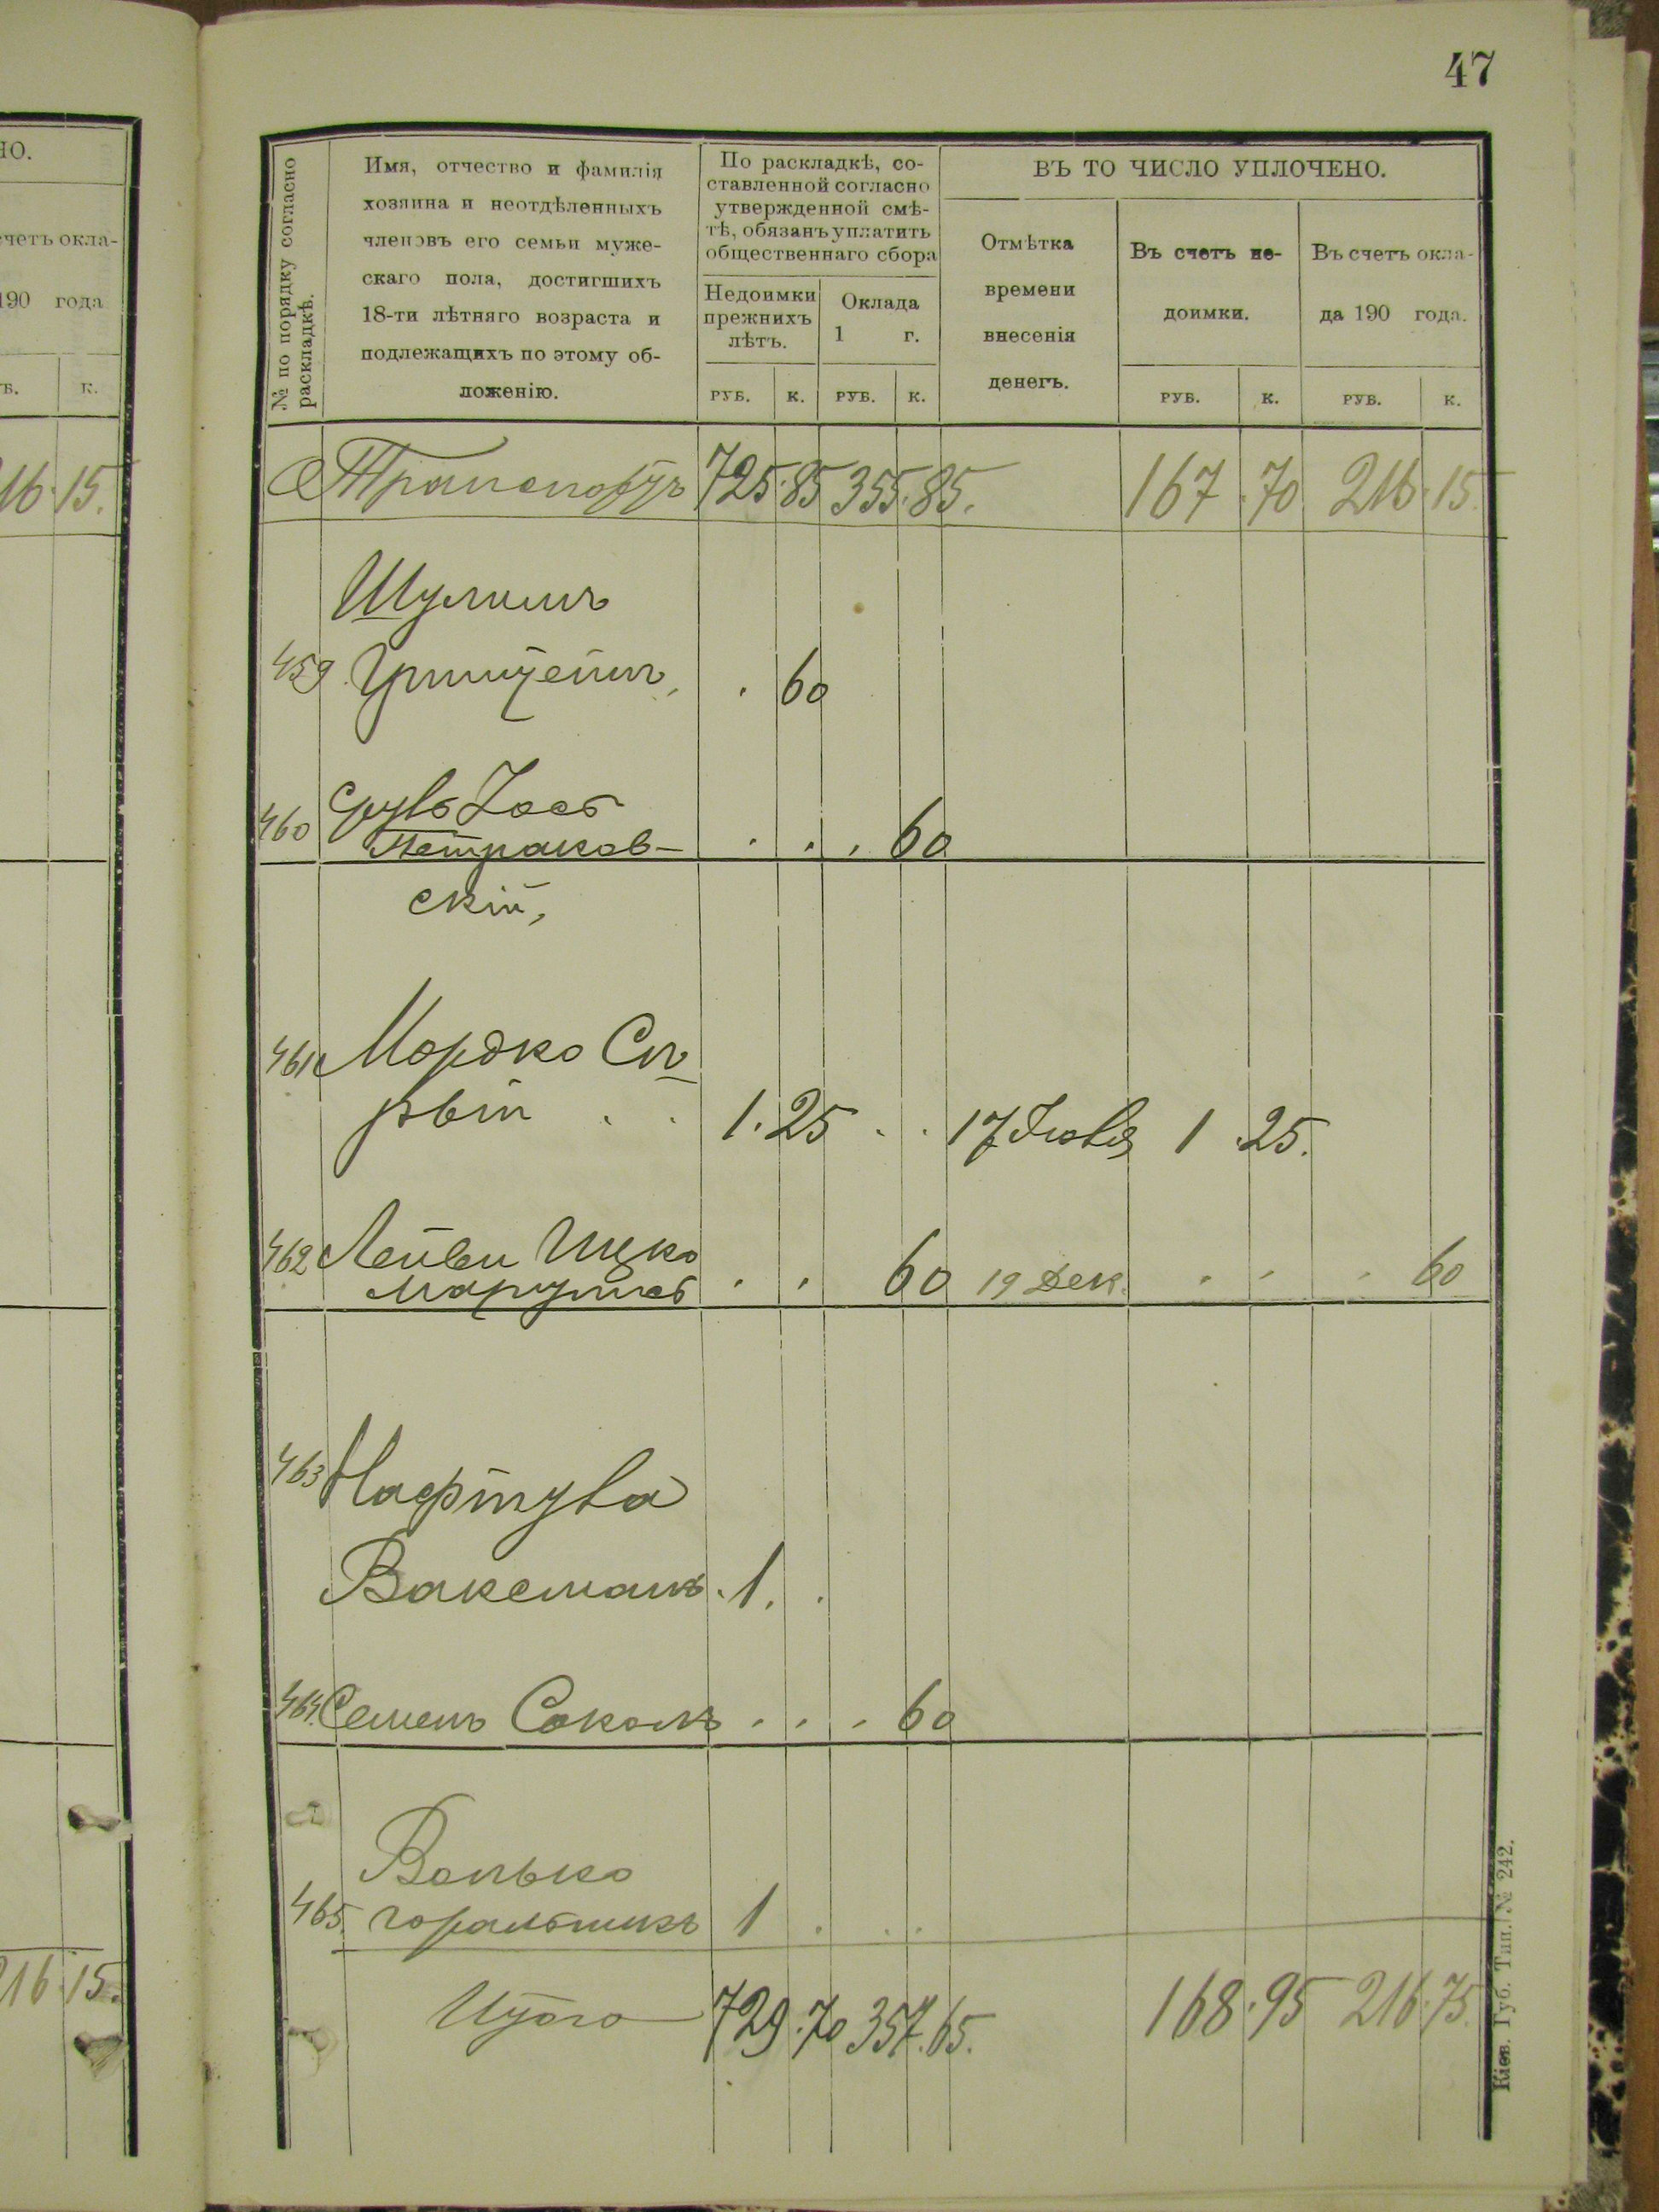 47
НО.
счетъ окла-
190 года
к.
216.15.
216.15.
№ по порядку согласно
раскладкѣ.
Имя, отчество и фамилія
хозяина и неотдѣленныхъ
членовъ его семьи муже-
скаго пола, достигшихъ
18-ти лѣтняго возраста и
подлежащихъ по этому об-
ложенію.
По раскладкѣ, со-
ставленной согласно
утвержденной смѣ-
тѣ, обязанъ уплатить
общественнаго сбора
Недоимки
прежнихъ
лѣтъ.
Оклада
1 г.
ВЪ ТО ЧИСЛО УПЛОЧЕНО.
Отмѣтка
времени
внесенія
денегъ.
Въ счетъ не-
доимки.
Въ счетъ окла-
да 190 года.
РУБ. К. РУБ. К. РУБ. К. РУБ. К.
Транспортъ 725.85 355.85. 167.70 216.15.
Шулимъ
459 . 60
460
Петраков- . . . 60
скій,
461 Мордко Сы
рый . . 1.25 . . 17 1 .25.
462 Лейви Ицко
. . 60 19 Дек. . . . 60
463 Нафтула
Ваксманъ . 1. .
464. Семенъ Соколъ . . . 60
Волько
465. горальникъ 1 . . .
Итого 729.70 357.65. 168.95 216.75.
Кіев. Губ. Тип. № 242.